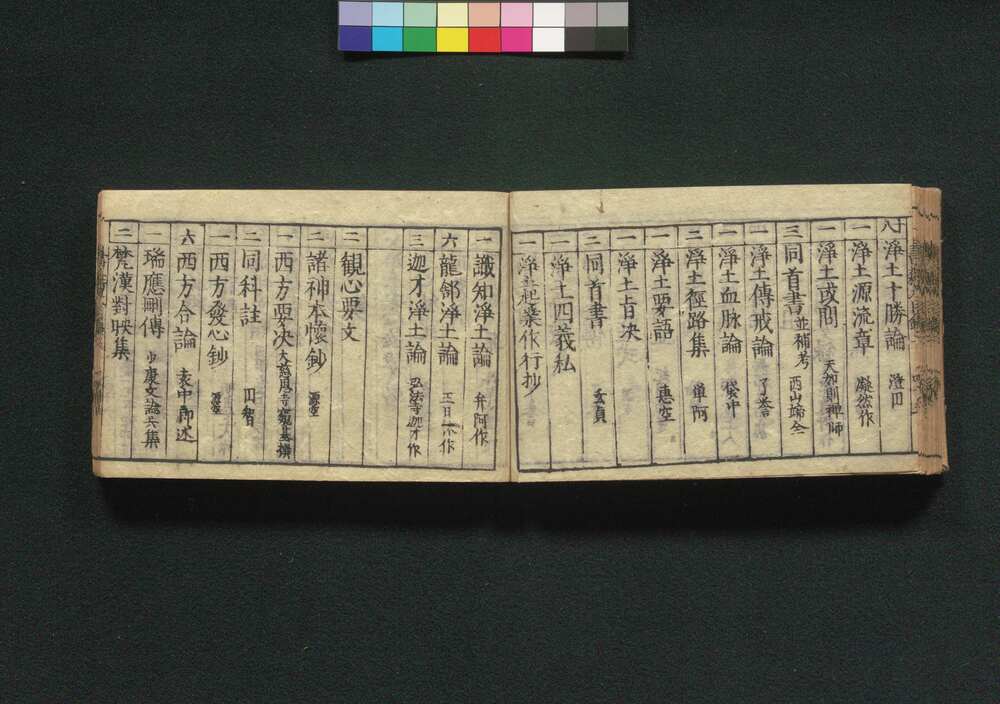 八 淨土十勝論 澄円
一 淨土源流章 凝然作
一 淨土或問 天如則禅師
三 同首書 並補考 西山端全
二 淨土傳戒論 了誉
一 淨土血脉論 袋中
二 淨土徑路集 單阿
一 淨土要語 惠空
一 淨土旨决
二 同首書 玄貞
一 淨土四義私
一 淨土起業作行抄
一 識知淨土論 弁阿作
六 龍舒淨土論 王日休作
三 迦才淨土論 弘法寺迦才作
二 観心要文
二 諸神本懐鈔 源空
一 西方要决 大慈恩寺窺基撰
二 同科註 円智
一 西方發心鈔 源空
六 西方合論 袁中郎述
一 瑞應刪傳 少康文諗共集
二 梵漢對映集